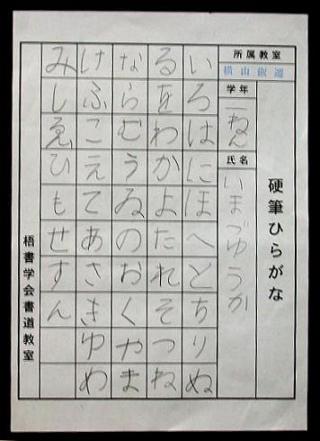 硬筆ひらがな
所属教室
学年
二ねん
氏名
いまづゆうか
いろはにほへとちりぬ
るをわかよたれそつね
ならむうゐのおくやま
けふこえてあさきゆめ
みしゑひもせすん
梧書学会書道教室